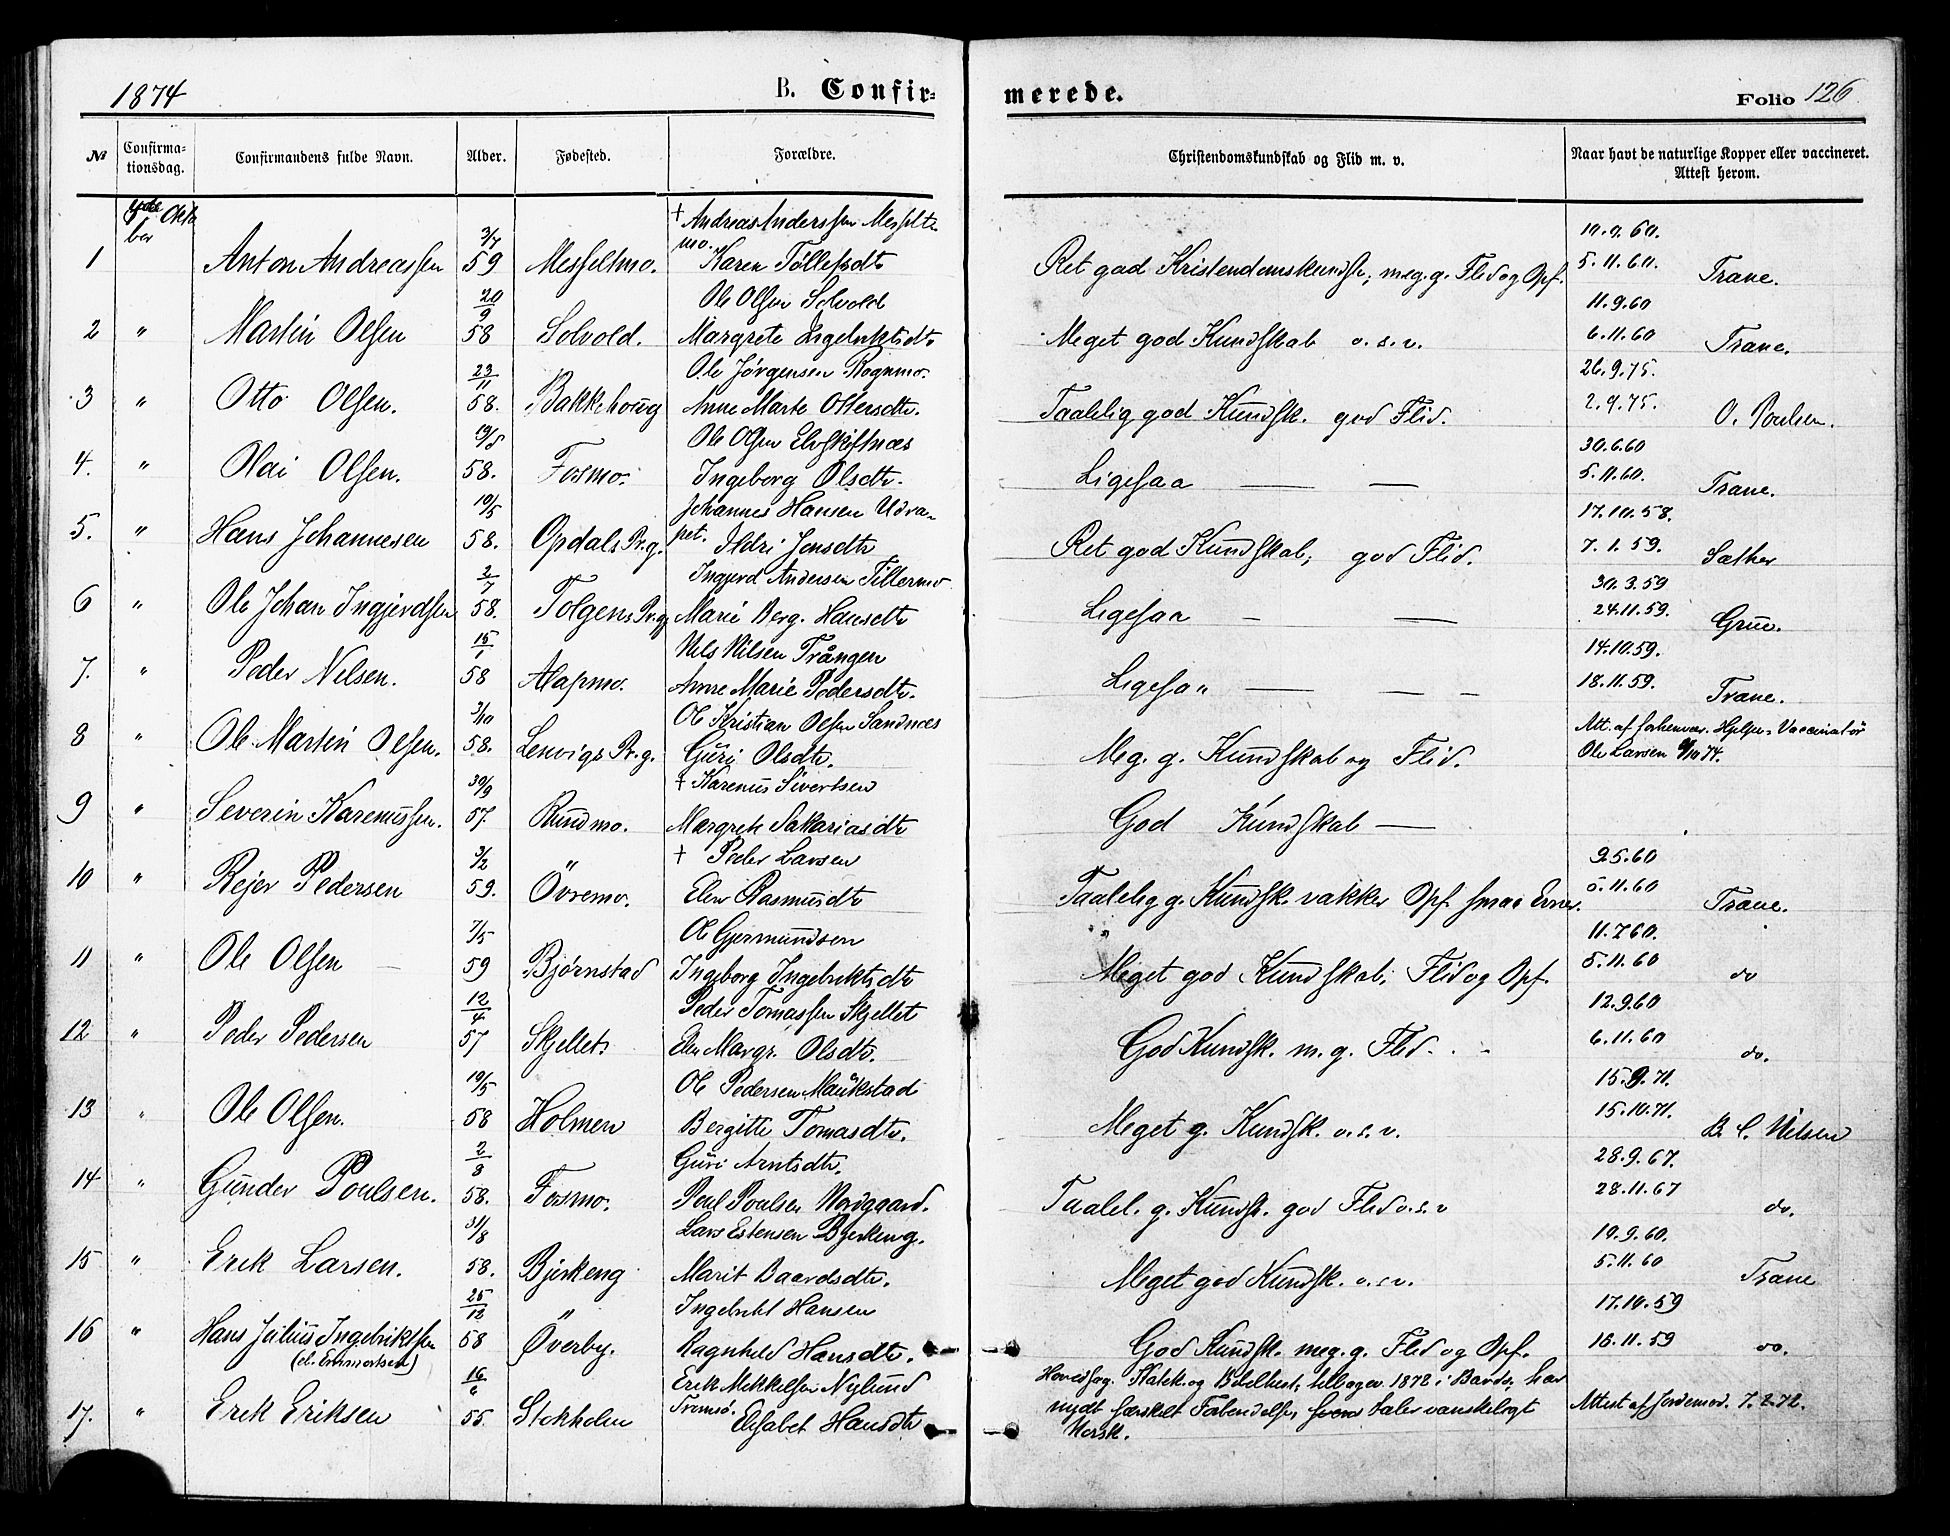 1874 B. Confir- merede. Folio 126
№ Confirma-tionsdag. Confirmandens fulde Navn. Alder. Fødested. Forældre. Christendomskundskab og Flid m. v. Naar havt de naturlige Kopper eller vaccineret. Attest herom.
Okto
ber † Andreas Anderssen Messelt-
3/7 mo. 10.9.60.
1 Anton Andreassen 59 Messeltmo. Karen Tollefsdtr Ret god Kristendomskundsk; meg. g. Flid og Opf. 5.11.60. Trane.
20/9 Ole Olsen Solvold 11.9.60
2 " Martin Olsen 58 Solvold. Margrete Ingebriktsdtr Meget god Kundskab o. s. v. 6.11.60 Trane.
23/11 Ole Jørgensen Rognmo. 26.9.75.
3 " Otto Olsen. 58. Bakkehoug Anne Marte Ottersdtr. Taalelig god Kundsk. god Flid. 2.9.75. O. Poulsen.
19/8 Ole Olsen Elvskiftnæs 30.6.60
4. " Olai Olsen. 58. Fosmo. Ingeborg Olsdtr. Ligesaa — — 5.11.60. Trane.
10/5 Johannes Hansen Udva- 17.10.58.
5. " Hans Johannesen 58. Opdals Pr.g. pet. Ildri Jensdtr Ret god Kundskab; god Flid. 7.1.59. Sæther
2/7 Ingjerd Andersen Tillermo 30.3.59
6 " Ole Johan Ingjerdsen 58. Tolgens Pr.gj Marie Berg. Hansdtr Ligesaa - — 24.11.59. Grue.
15/1 Nils Nilsen Trången 14.10.59.
7. " Peder Nilsen. 58 Alapmo. Anne Marie Pedersdtr. Ligesaa — — - 18.11.59. Trane.
3/10 Ole Kristian Olsen Sandnæs Att. af forhenvær. Hjelpe-Vaccinatør
8 " Ole Martin Olsen. 58. Lenvigs Pr.g. Guri Olsdtr. Meg. g. Kundskab og Flid. Ole Larsen 9/10 74.
30/9 † Karenus Sivertsen
9 " Severin Karenussen. 57. Rundmo. Margrete Sakariasdtr God Kundskab —
3/2 † Peder Larsen 9.5.60
10 " Rejer Pedersen 59. Övremo. Elen Rasmusdtr Taalelig g. Kundsk. vakker Opf. smaa Evner. 5.11.60 Trane.
7/5 Ole Gjermundsen 11.7.60.
11 " Ole Olsen 59 Bjørnstad Ingeborg Ingebriktsdtr Meget god Kundskab; Flid og Opf. 5.11.60 do
12/4 Peder Tomassen Skjellet 12.9.60
12 " Peder Pedersen 57 Skjellet. Elen Margr. Olsdtr. God Kundsk. m. g. Flid. 6.11.60 do.
10/5 Ole Pedersen Maukstad 15.9.71.
13 " Ole Olsen. 58 Holmen Bergitte Tomasdtr. Meget g. Kundsk. o. s. v. 15.10.71. B. C. Nilsen
2/8 Guri Arntsdtr. 28.9.67.
14 " Gunder Poulsen. 58. Fosmo. Poul Poulsen Nordgaard. Taalel. g. Kundsk. god Flid o. s. v 28.11.67 do.
31/8 Lars Estensen Bjerkeng. 19.9.60.
15 " Erik Larsen. 58. Bjerkeng Marit Baardsdtr. Meget god Kundsk. o. s. v. 5.11.60 Trane
25/12 Ingebrikt Hansen 17.10.59
16 " Hans Julius Ingebriktsen 58 Överby. Ragnhild Hansdtr. God Kundsk. meg. g. Flid og Opf. 16.11.59 do.
16/6 Erik Mikkelsen Nylund
17. " Erik Eriksen 55. Stokholm Tromsø. Elisabet Hansdtr 1872 i Bardo; har
nydt særskilt taler vanskeligt Attest af Jordemod. 7.2.72.
Norsk.